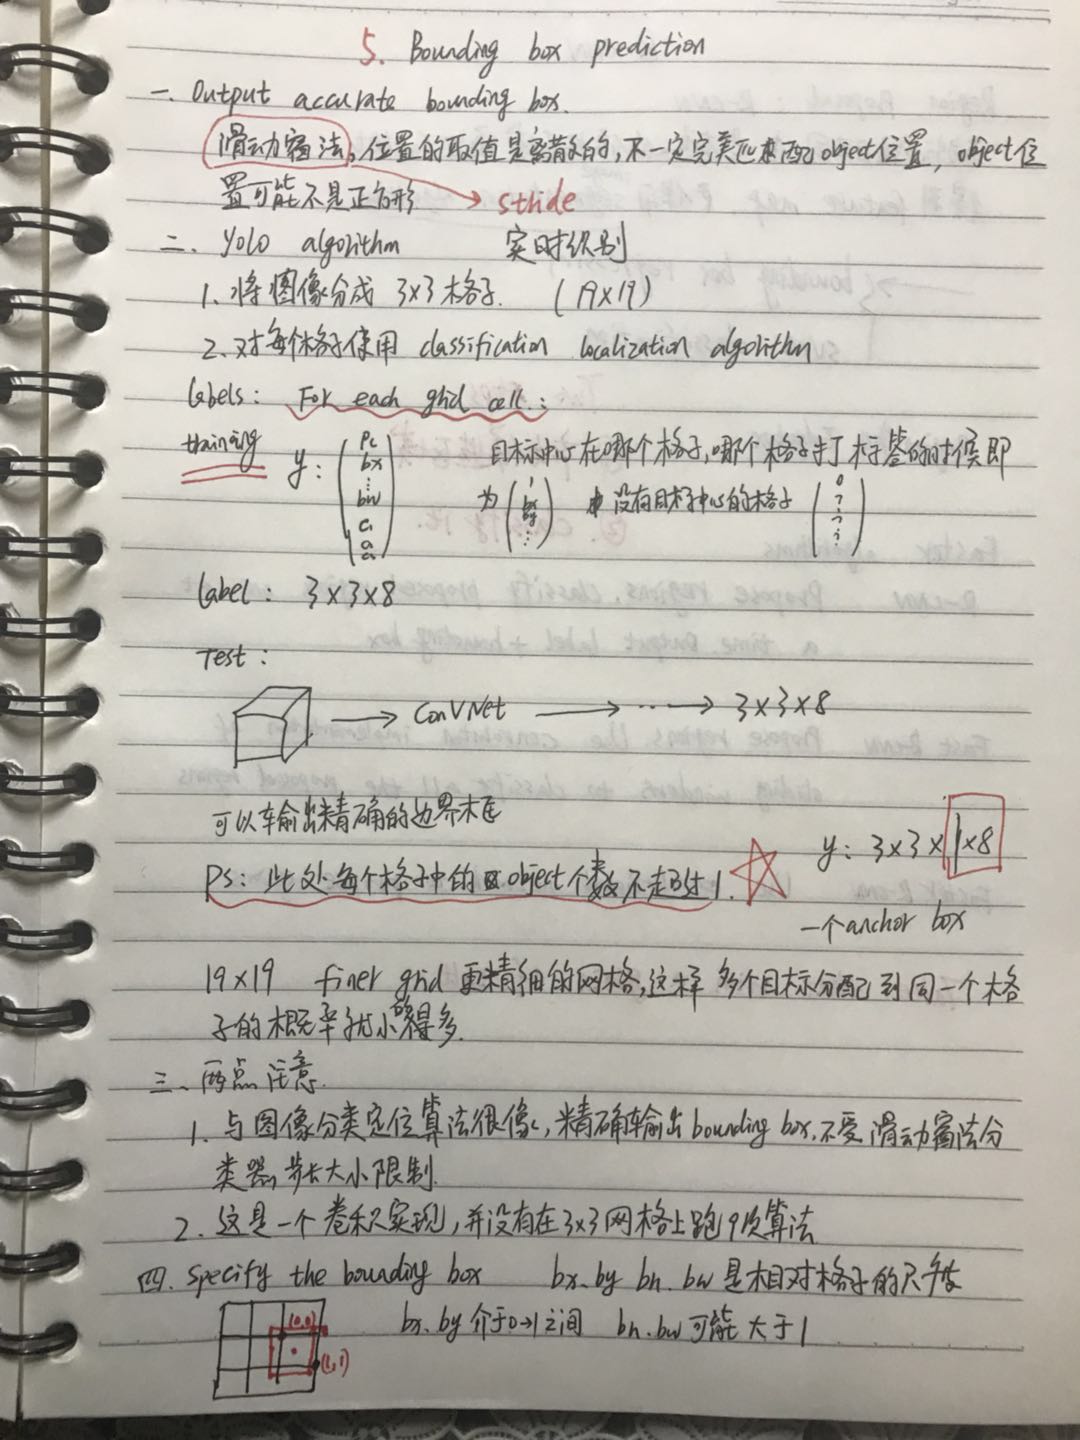 5. Bounding box prediction
一. Output accurate bounding box.
滑动窗法, 位置的取值是离散的, 不一定完美匹配object位置, object位
置可能不是正方形 → stride
二. YOLO algorithm 实时识别
1. 将图像分成 3×3 格子. (19×19)
2. 对每个格子使用 classification localization algorithm
labels: For each grid cell:
training y: (Pc bx ⋮ bw C1 C2 C3) 目标中心在哪个格子, 哪个格子打标签的时候即
为 (1 bx by ⋮) 没有目标中心的格子 (0 ? ? ⋮)
label: 3×3×8
Test:
→ ConvNet → ⋯ → 3×3×8
可以输出精确的边界框
y: 3×3×1×8
PS: 此处每个格子中的object个数不超过1.
一个anchor box
19×19 finer grid 更精细的网格, 这样多个目标分配到同一个格
子的概率就小得多.
三、两点注意.
1. 与图像分类定位算法很像, 精确输出bounding box, 不受滑动窗法分
类器步长大小限制.
2. 这是一个卷积实现, 并没有在3×3网格上跑9次算法
四. Specify the bounding box bx. by bh. bw 是相对格子的尺度
bx. by 介于0→1之间 bh. bw可能大于1
(0,0)
(1,1)